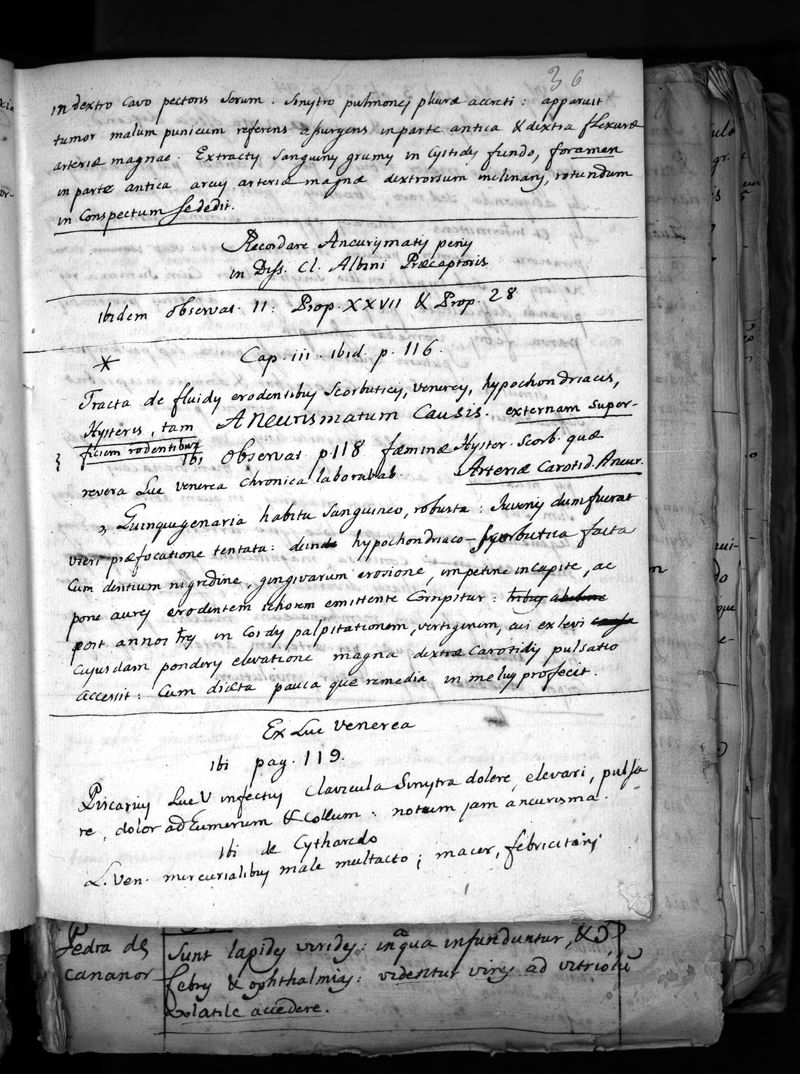 36
in dextro cavo pectoris serum. Sinistro pulmones pluræ accreti: apparuit
tumor malum punicum referens assurgens in parte antica & dextra flexuræ
arteriæ magnæ. Extractis sanguinis grumis in Cystidis fundo, foramen
in parte antica arcus arteriæ magnæ dextrorsum inclinans, rotundum
in Conspectum se dedit.
Recordare Aneurismatis penis
in Diss. Cl. Albini Præcaptoris
ibidem observat. II: Prop. XXVII & Prop. 28
* Cap. iii. ibid. p. 116.
Tracta de fluidis erodentibus Scorbuticis, venereis, hypochondriacis,
Hystericis, tam Aneurismatum Causis. externam super-
ficiem rodentibus
ibi Observat. p. 118 fæminæ Hyster. Scorb. quæ
revera Lue venerea Chronica laborabat. Arteriæ Carotid. Aneur.
Quinquagenaria habitu sanguineo, robusta: Juvenis dum fuerat
uteri præfocatione tentata: deinde hypochondriaco-scorbutica facta
Cum dentium nigredine, gingivarum erosione, impetine in capite, ac
pone aures erodentem ichorem emittente Corripitur: tribus
post annos tres in Cordis palpitationem, vertiginem, cui ex levi
Cujusdam ponderis elevatione magna dextræ Carotidis pulsatio
accessit: Cum diæta pauca quæ remedia in melius profecit.
Ex Lue Venerea
ibi pag. 119.
Piscarius Lue V infectus Clavicula Sinistra dolere, elevari, pulsa
re, dolor ad Eumerum & Collum: notum jam aneurisma.
Ibi de Cytharedo
L. Ven. mercurialibus male multacto; macer, febricitans
Pedra de
Cananor
Sunt lapides virides: in aqua infunduntur, &
febris & ophthalmias: videntur vires ad vitriolum
volatile accedere.